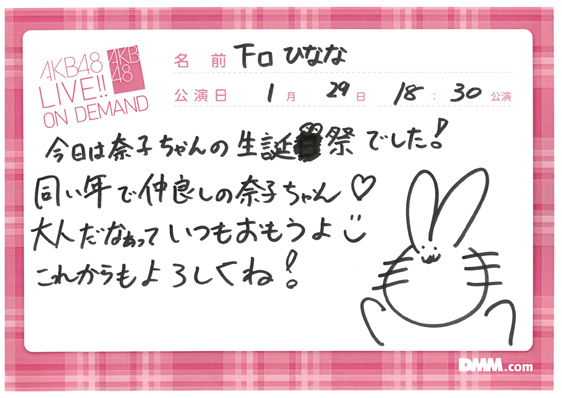 AKB48
LIVE!!
ON DEMAND
AKB
48
名前 下口ひなな
公演日 1月 29日 18:30公演
今日は奈子ちゃんの生誕祭でした!
同い年で仲良しの奈子ちゃん♡
大人だなぁっていつもおもうよ
これからもよろしくね!
DMM.com